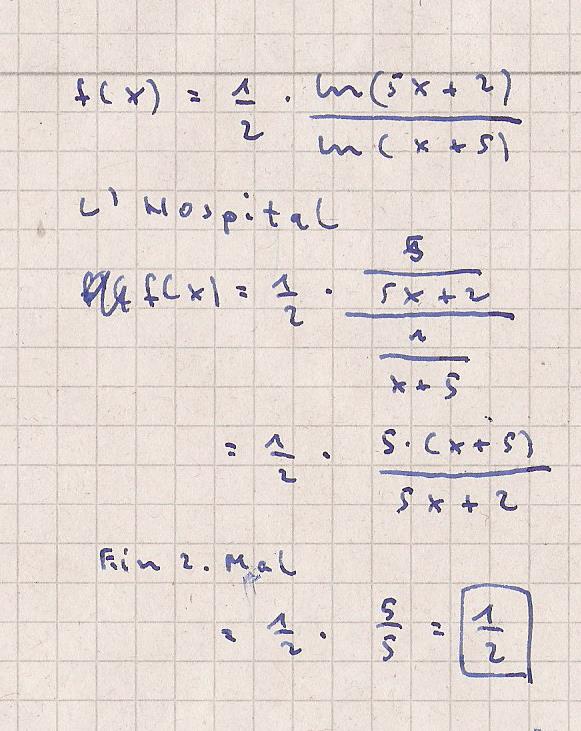 f(x) = 1/2 · ln(5x + 2) / ln(x + 5)
L' Hospital
f(x) = 1/2 · (5 / (5x + 2)) / (1 / (x + 5))
= 1/2 · 5·(x + 5) / (5x + 2)
Ein 2. Mal
= 1/2 · 5/5 = 1/2